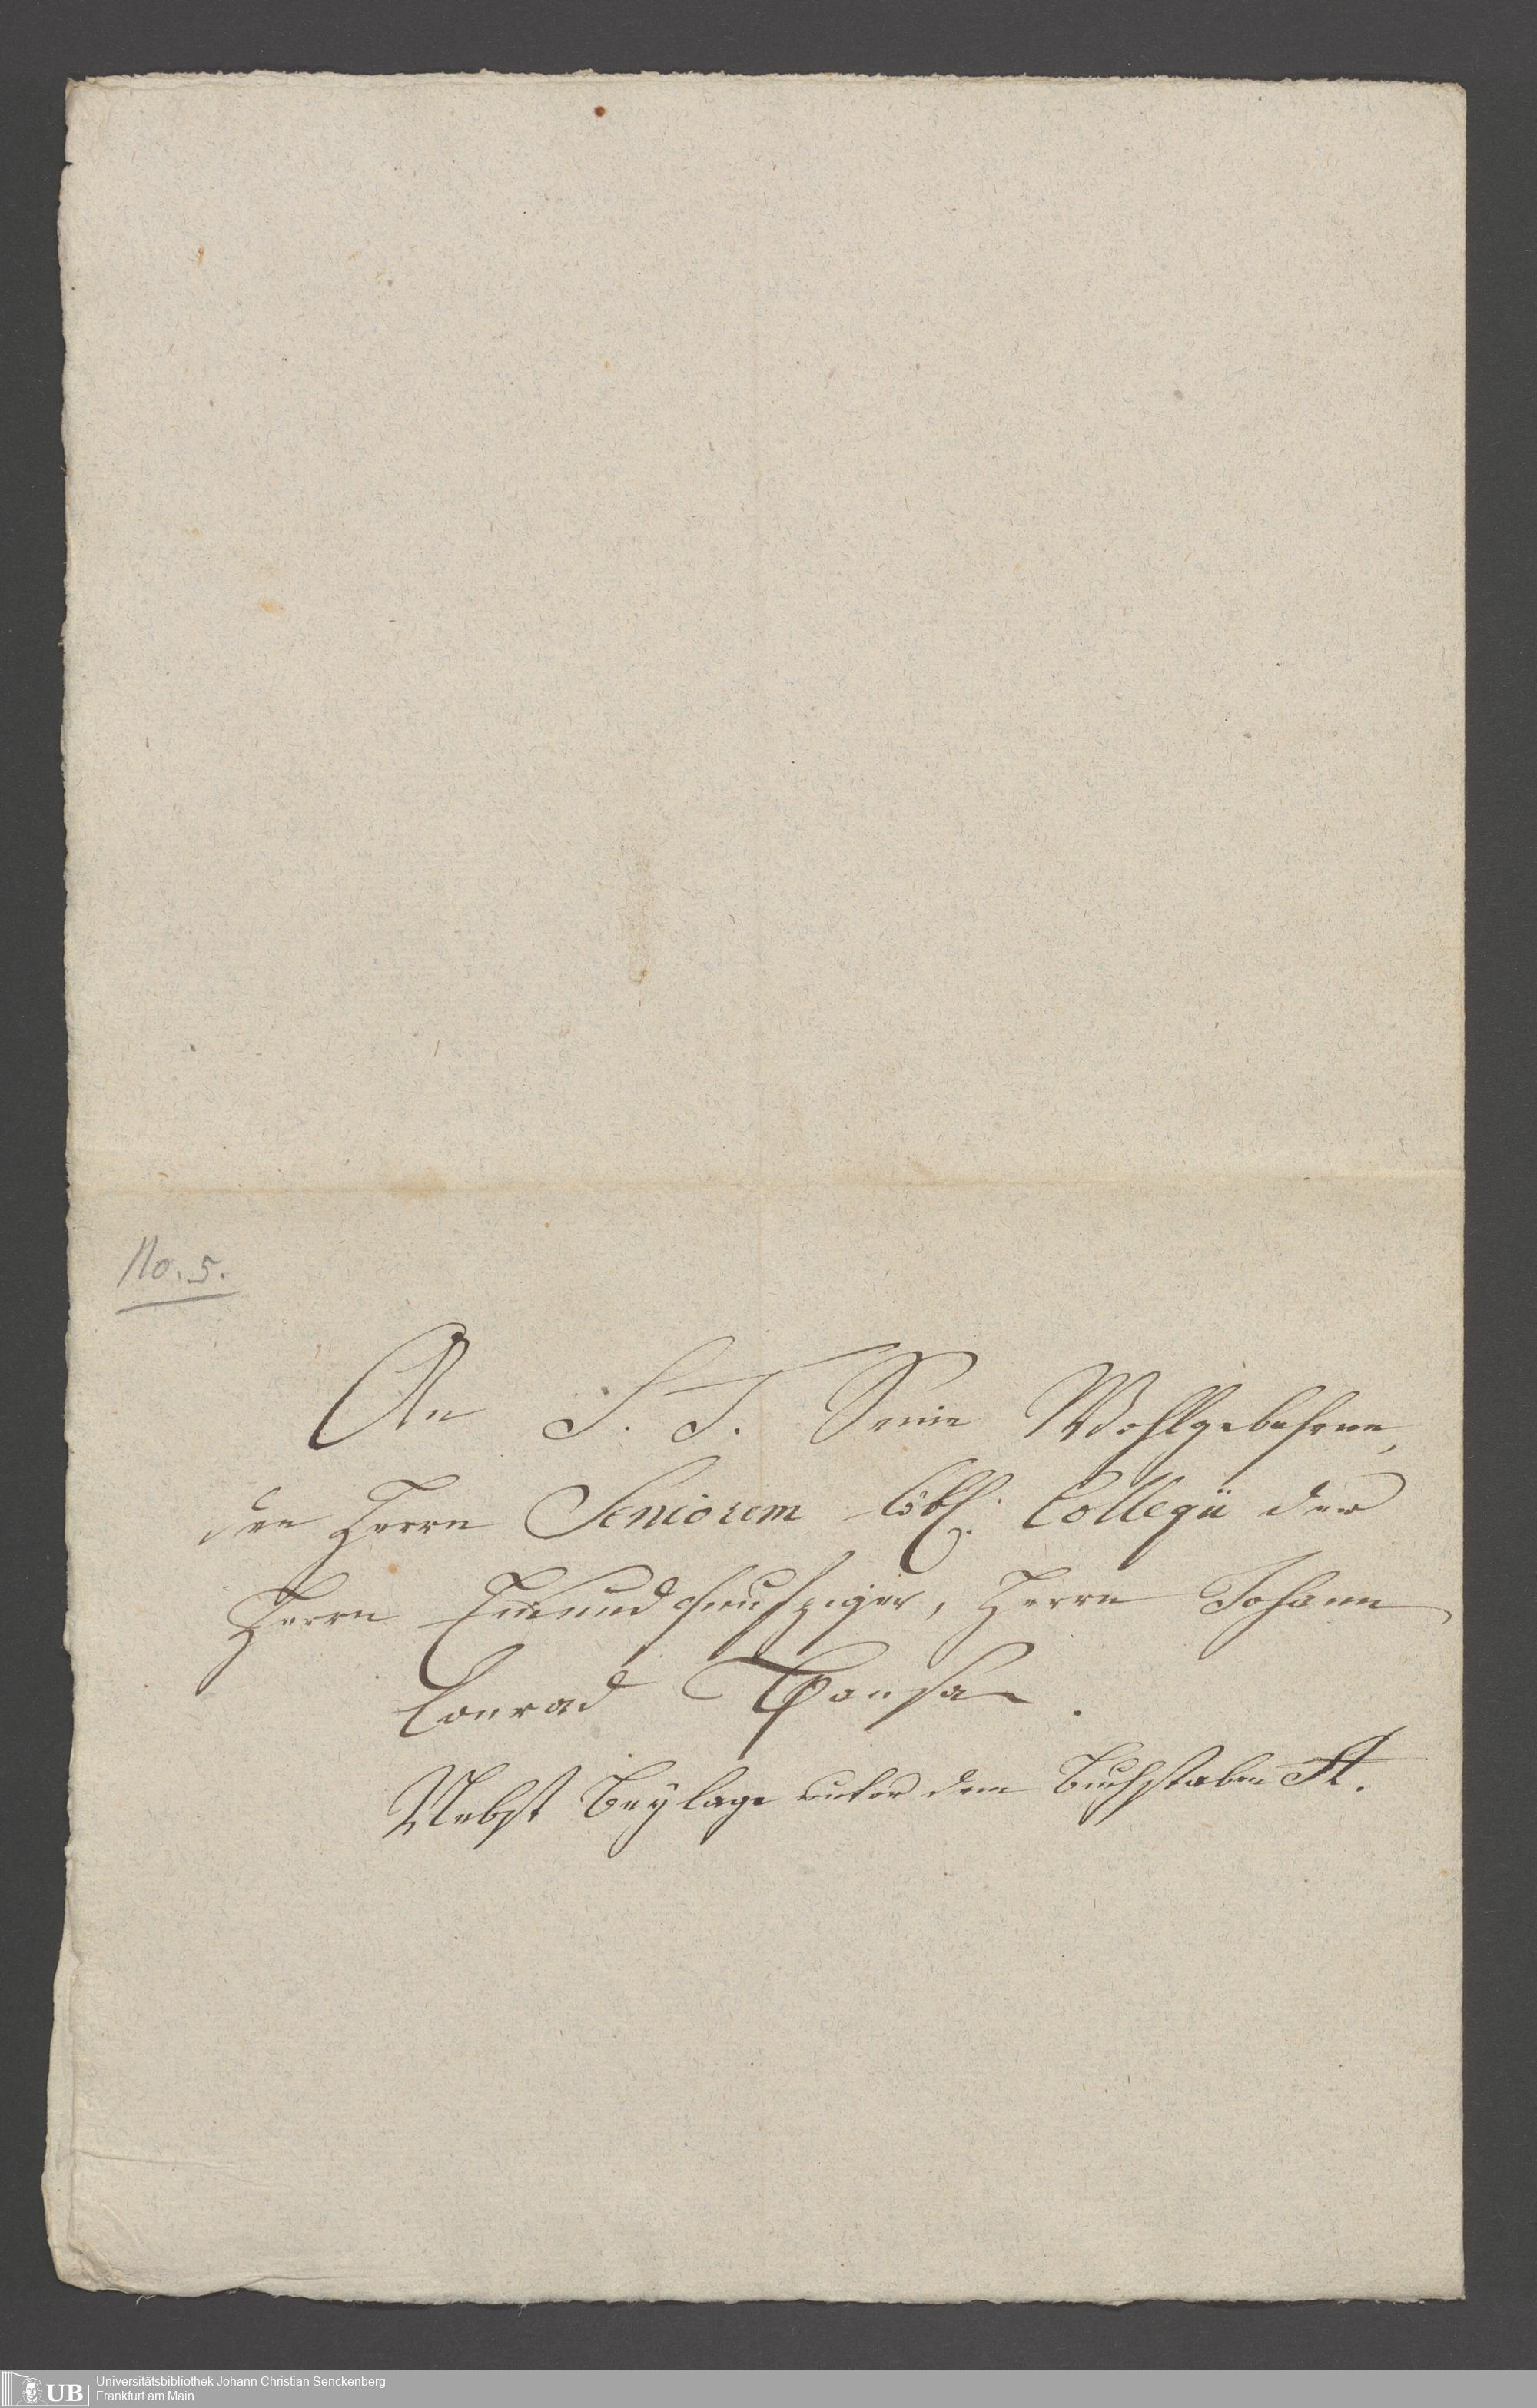 No. 5.
An S. T. Seine Wohlgebohren,
den Herrn Seniorem löbl. Collegii der
Herrn Einundfunfziger, Herrn Johann
Conrad
Nebst Beylage unter dem Buchstaben A.
UB
Universitätsbibliothek Johann Christian Senckenberg
Frankfurt am Main